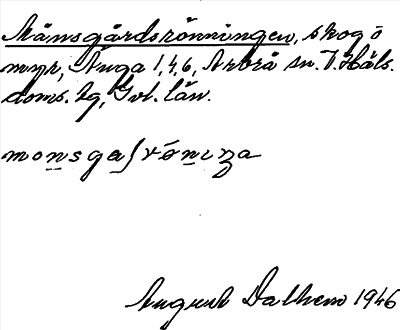 Månsgårdsrönningen, skog o
myr, Änga 1,4,6, Arbrå sn. V. Häls.
doms. tg, Gvl. län.
monsgaʃrönıŋa
August Dalhem 1946